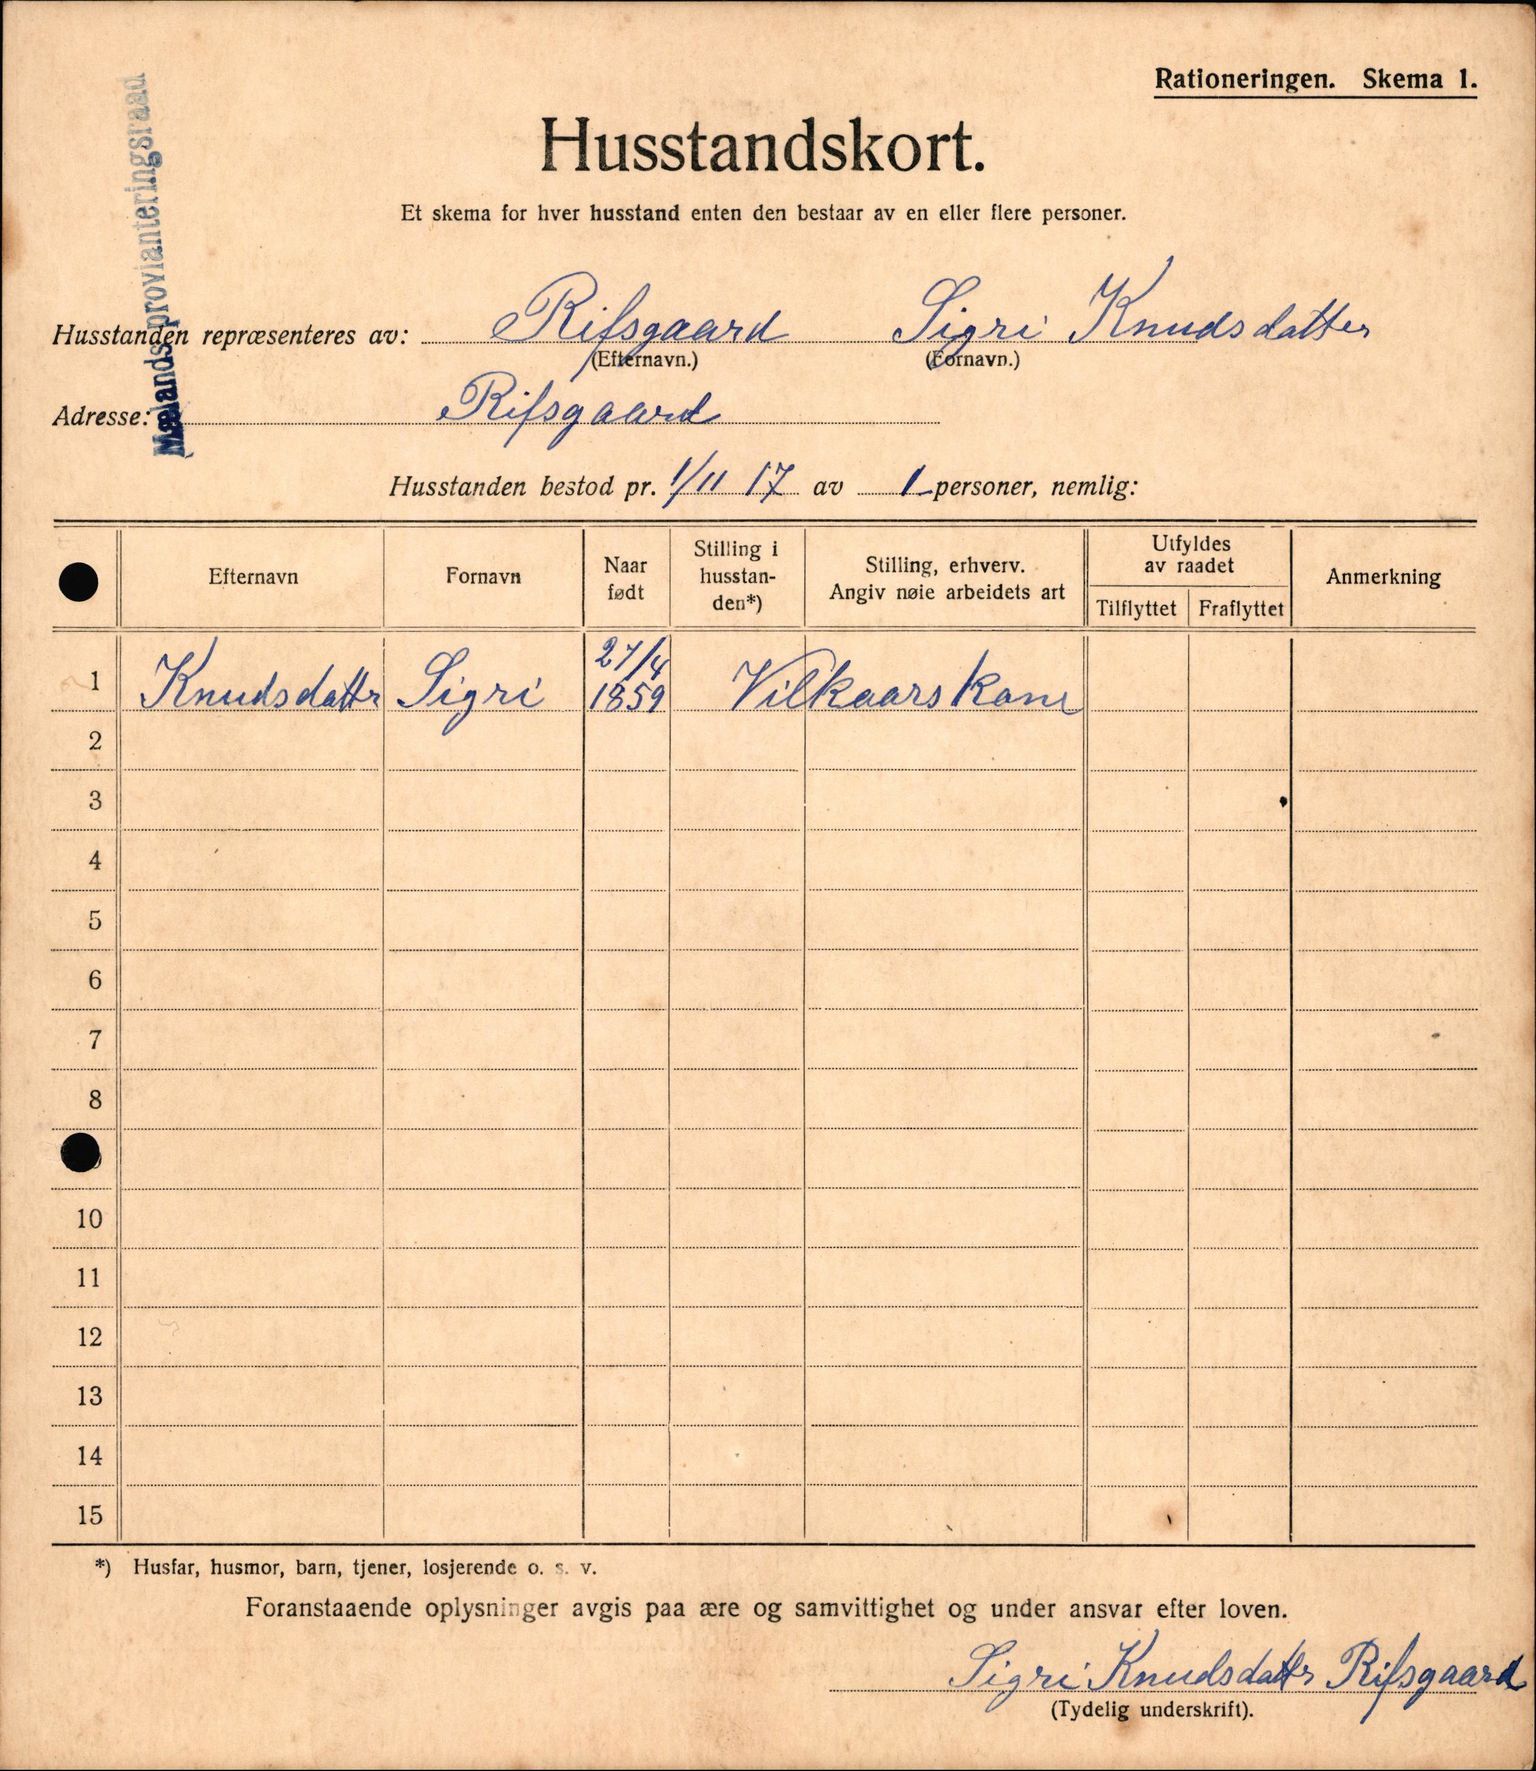 Rationeringen. Skema 1.
Mælands provianteringsraad
Husstandskort.
Et skema for hver husstand enten den bestaar av en eller flere personer.
Husstanden repræsenteres av: Rifsgaard Sigri Knudsdatter
(Efternavn.) (Fornavn.)
Adresse: Rifsgaard
Husstanden bestod pr. 1/11 17 av 1 personer, nemlig:
Efternavn Fornavn Naar født Stilling i husstan-den*) Stilling, erhverv. Angiv nøie arbeidets art Utfyldes av raadet Tilflyttet Fraflyttet Anmerkning
1 Knudsdattr Sigri 27/4 1859 Vilkaarskone
2
3
4
5
6
7
8
10
11
12
13
14
15
*) Husfar, husmor, barn, tjener, losjerende o. s. v.
Foranstaaende oplysninger avgis paa ære og samvittighet og under ansvar efter loven.
Sigri Knudsdattr Rifsgaard
(Tydelig underskrift).